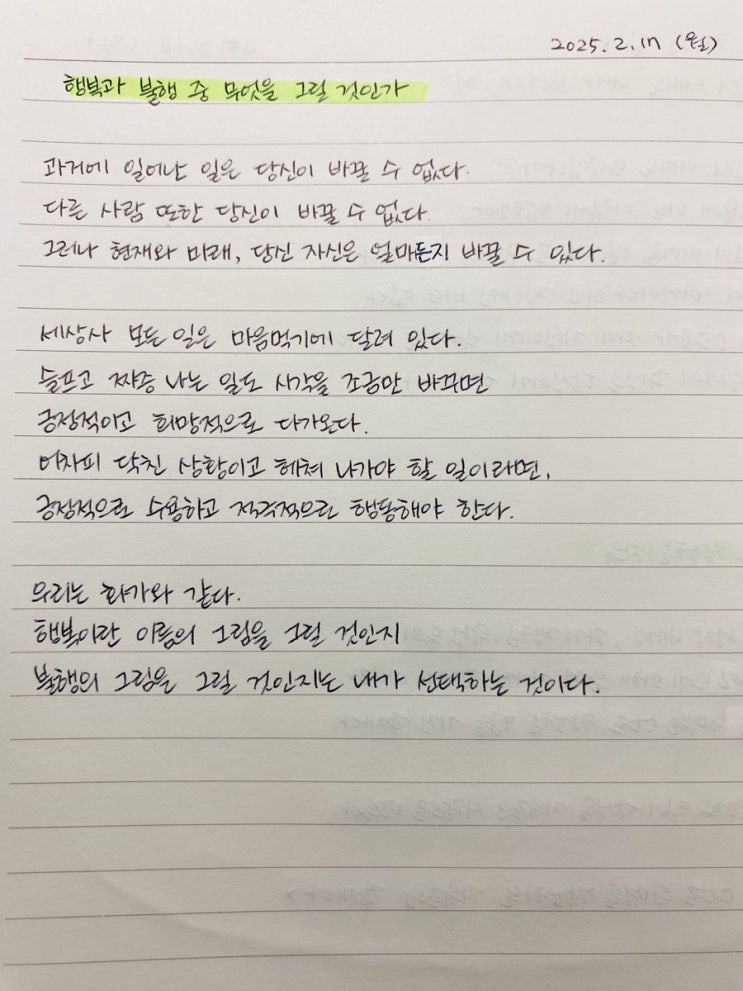 2025. 2. 17 (월)
행복과 불행 중 무엇을 그릴 것인가
과거에 일어난 일은 당신이 바꿀 수 없다.
다른 사람 또한 당신이 바꿀 수 없다.
그러나 현재와 미래, 당신 자신은 얼마든지 바꿀 수 있다.
세상사 모든 일은 마음먹기에 달려 있다.
슬프고 짜증 나는 일도 시각을 조금만 바꾸면
긍정적이고 희망적으로 다가온다.
어차피 닥친 상황이고 헤쳐 나가야 할 일이라면,
긍정적으로 수용하고 적극적으로 행동해야 한다.
우리는 화가와 같다.
행복이란 이름의 그림을 그릴 것인지
불행의 그림을 그릴 것인지는 내가 선택하는 것이다.